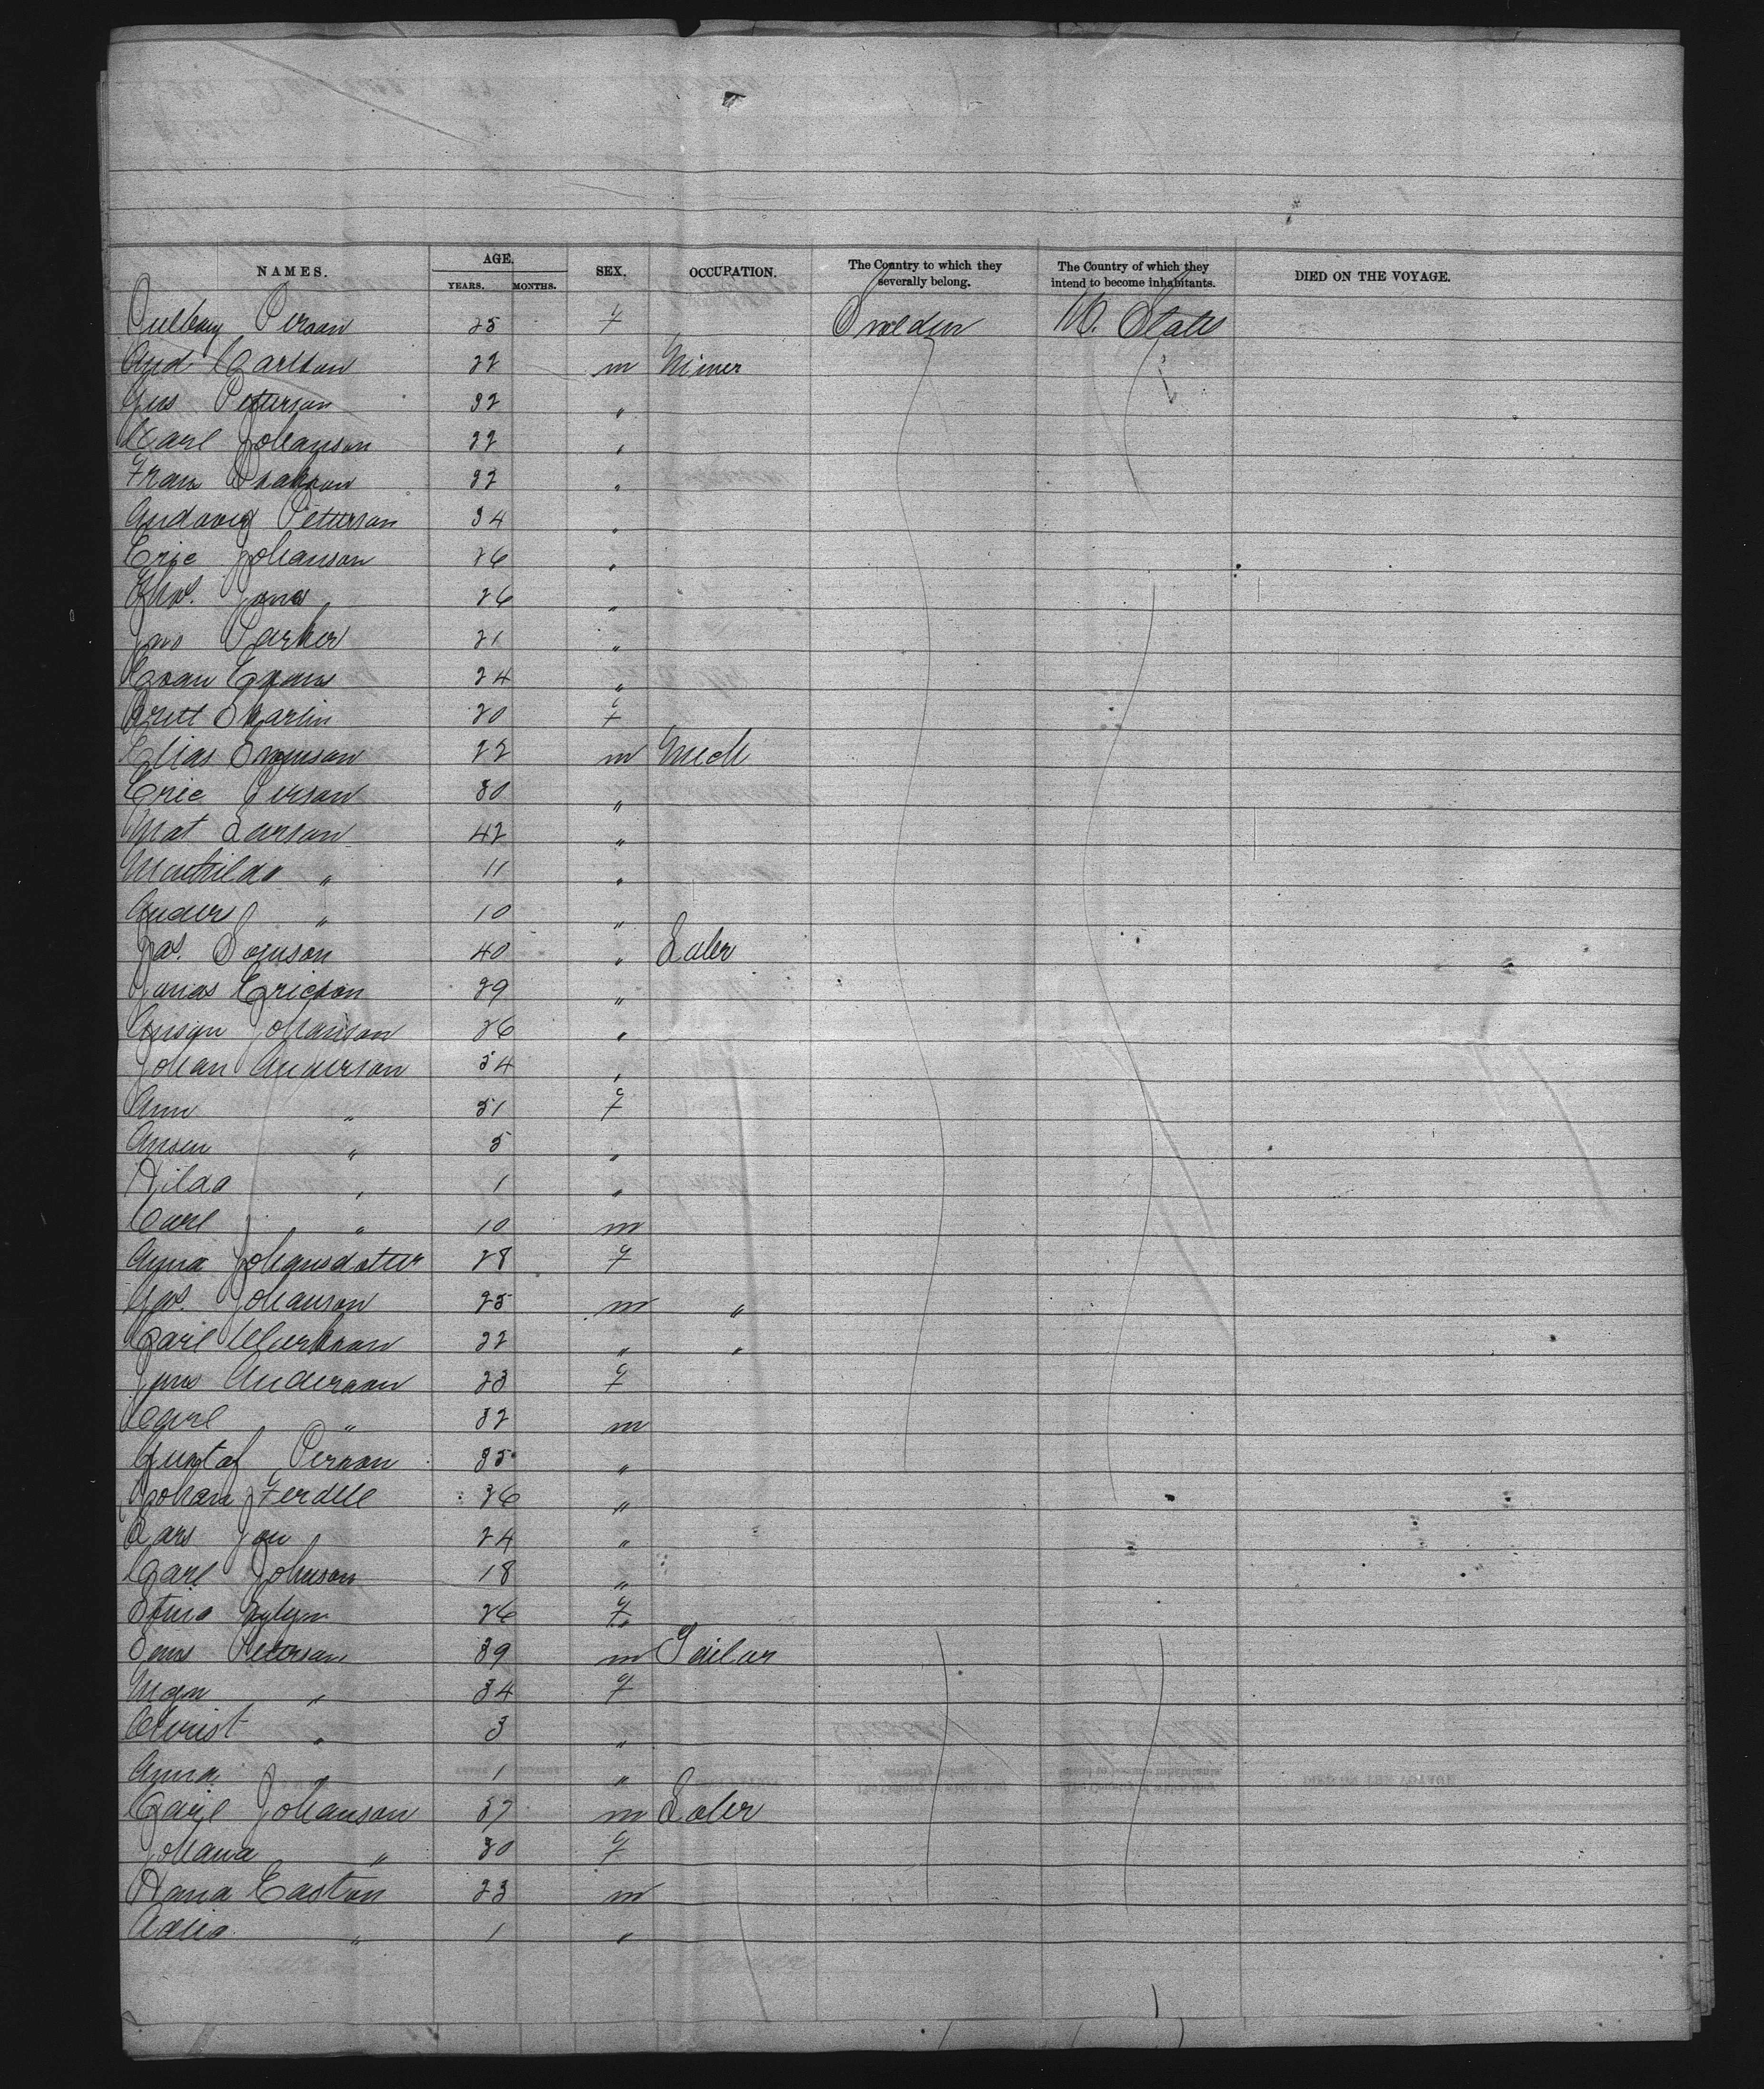 NAMES. AGE. YEARS. MONTHS. SEX. OCCUPATION. The Country to which they severally belong. The Country of which they intend to become inhabitants. DIED ON THE VOYAGE.
Person 25 f Sweden U. States
And. Carlson 22 m Miner
Gus Peterson 32 "
Carl Johanson 22 "
Frans 32 "
Peterson 34 "
Eric Johanson 26 "
Jona 26 "
Jno Parker 21 "
Evan Evans 24 "
Britt Skarlin 20 f
Elias Swenson 22 m Mech
Eric Person 30 "
Mat Larson 42 "
Mathilda " 11 "
Anders " 10 "
Jas. 40 " Labr
Jonas Ericson 29 "
Johanson 26 "
Johan Anderson 34 "
Ann " 31 f
Ansen " 5 "
Hilda " 1 "
Carl " 10 m
Anna Johansdotter 28 f
Jas. Johanson 25 m "
Carl 22 " "
Jens Anderson 23 f
Carl " 32 m
Gustaf Person 35 "
Johan Ferdell 36 "
Lars Jon 24 "
Carl Johnson 18 "
Stina 26 f
Peterson 39 m Tailor
" 34 f
Christ " 3 "
Anna " 1 "
Carl Johanson 37 m Labr
Johana " 30 f
Hana Easton 23 m
" 1 "